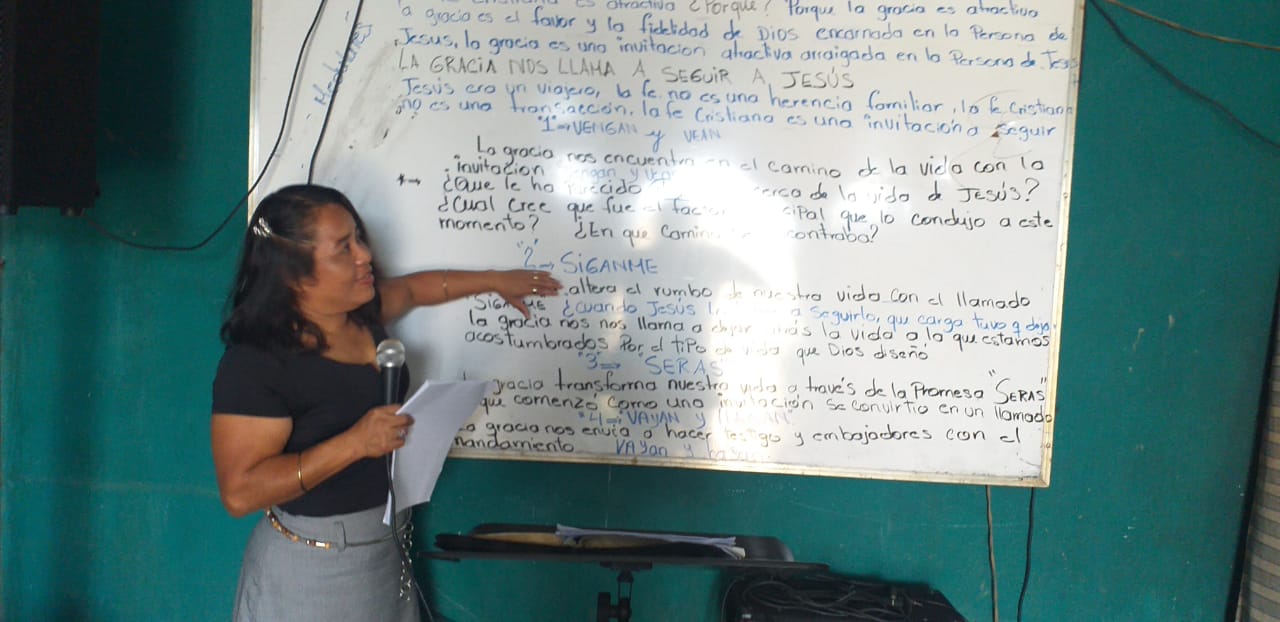 es atractiva ¿Porque? Porque la gracia es atractiva
a gracia es el favor y la fidelidad de Dios encarnada en la Persona de
Jesus, la gracia es una invitacion atractiva arraigada en la Persona de Jesus
LA GRACIA NOS LLAMA A SEGUIR A JESÚS
Jesús era un viajero, la fe no es una herencia familiar, la fe cristiana
no es una transacción, la fe Cristiana es una invitación a seguir
"1"→ VENGAN y VEAN
La gracia nos encuentra en el camino de la vida con la
invitacion
*→ ¿Que le ha parecido cerca de la vida de JESÚS?
¿Cual cree que fue el factor cipal que lo condujo a este
momento? ¿En que Camino contraba?
"2"→ SIGANME
altera el rumbo de nuestra vida con el llamado
¿cuando Jesús a seguirlo, que carga tuvo q dejar
la gracia nos nos llama a dejar atrás la vida a la que estamos
acostumbrados Por el tipo de vida que Dios diseñó
"3"→ "SERAS"
gracia transforma nuestra vida a través de la Promesa "SERAS"
que comenzó como una invitación se convirtio en un llamado
"4"→ VAYAN y
a gracia nos envia a hacer testigo y embajadores con el
mandamiento VAyan y